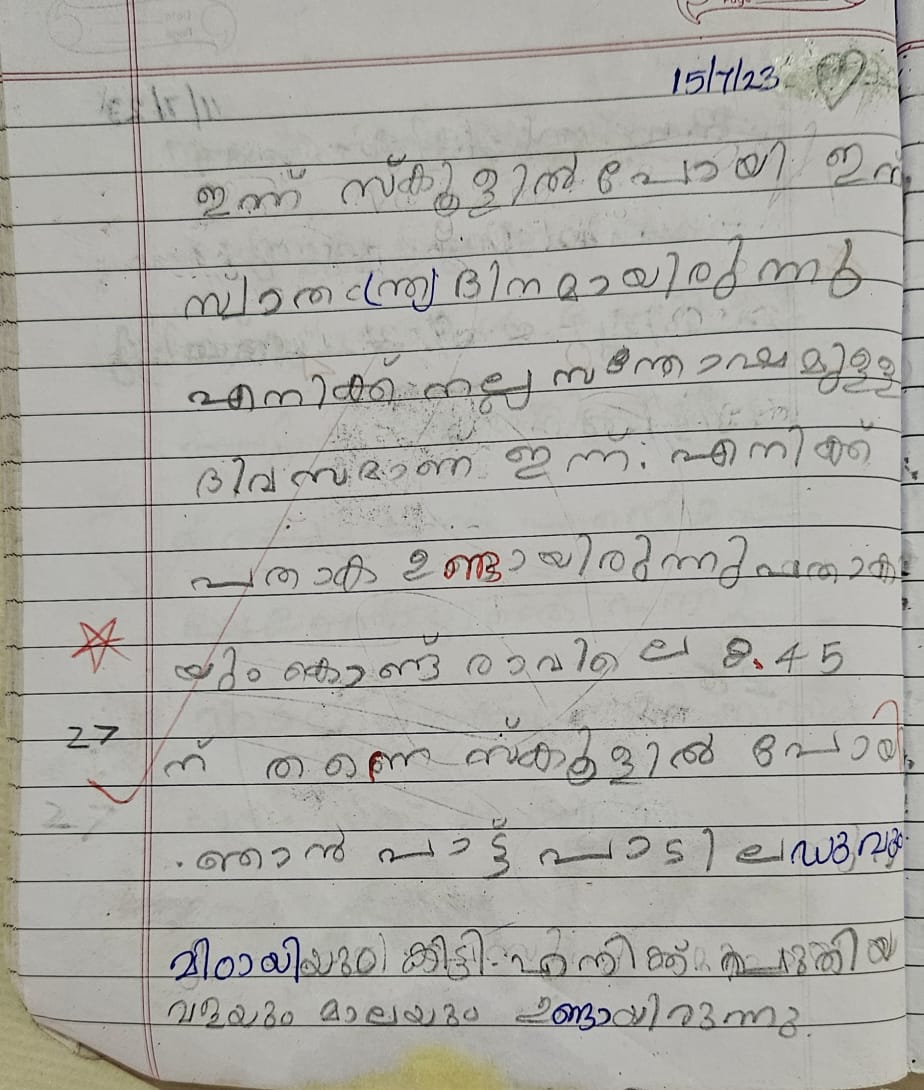 15/7/23
ഇന്ന് സ്കൂളിൽ പോയി ഇന്ന്
സ്വാതന്ത്ര്യ ദിനമായിരുന്നു
എനിക്ക് നല്ല സന്തോഷമുള്ള
ദിവസമാണ് ഇന്ന്. എനിക്ക്
പതാക ഉണ്ടായിരുന്നു പതാക
യും കൊണ്ട് രാവിലെ 8.45
27
ന് തന്നെ സ്കൂളിൽ പോയി
ഞാൻ പാട്ട് പാടി ലഡുവും
മിഠായിയും കിട്ടി എനിക്ക് പുതിയ
വളയും മാലയും ഉണ്ടായിരുന്നു.